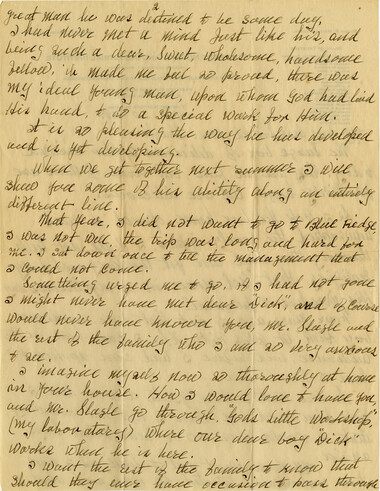 2
great man he was destined to be some day.
I had never met a mind just like his, and
being such a dear, sweet, wholesome, handsome
fellow, it made me feel so proud, there was
my ideal young man, upon whom God had laid
His hand, to do a special work for Him.
It is so pleasing the way he has developed
and is yet developing.
When we get together next summer I will
show you some of his ability along an entirely
different line.
That year, I did not want to go to Blue Ridge,
I was not well, the trip was long and hard for
me. I sat down once to tell the management that
I could not come.
Something urged me to go. If I had not gone
I might never have met dear "Dick", and of course
would never have known you, Mr. Slagle and
the rest of the family who I am so very anxious
to see.
I imagine myself now so thoroughly at home
in your house. How I would love to have you,
and Mr. Slagle go through, "Gods Little Workshop"
(my laboratory) where our dear boy "Dick"
works when he is here.
I want the rest of the family to know that
should they ever have occasion to pass through